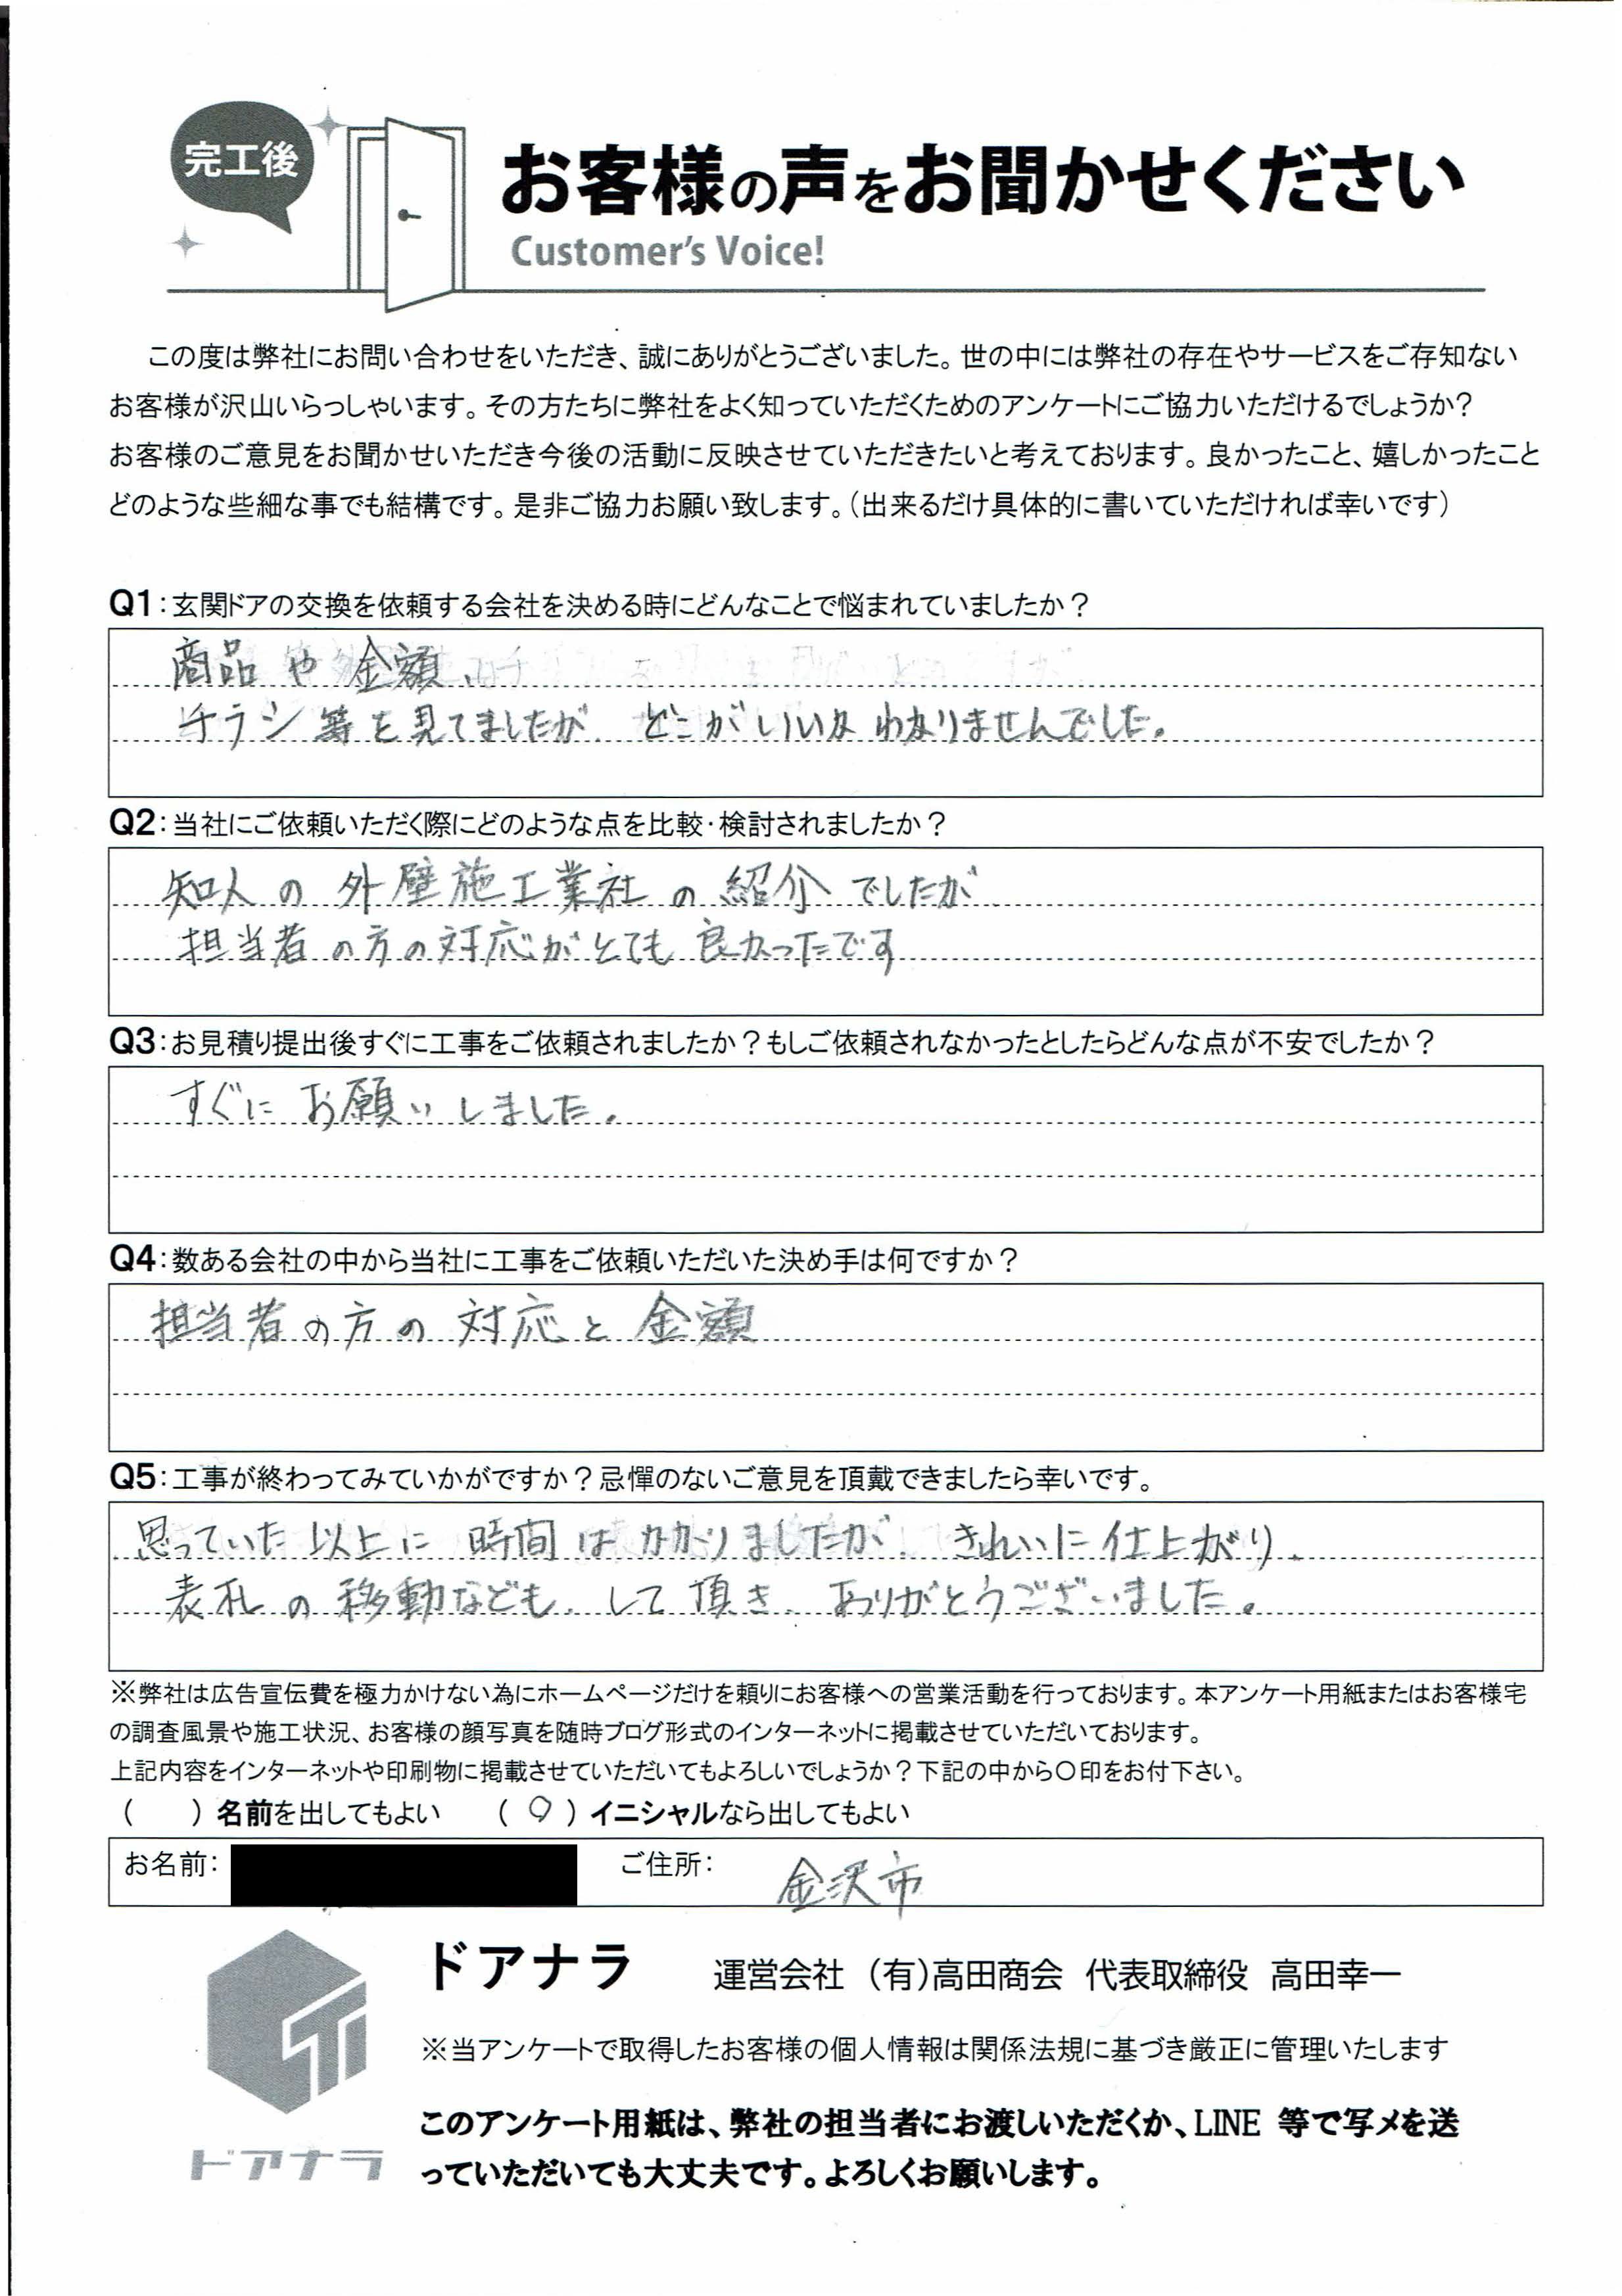 完工後
お客様の声をお聞かせください
Customer's Voice!
この度は弊社にお問い合わせをいただき、誠にありがとうございました。世の中には弊社の存在やサービスをご存知ない
お客様が沢山いらっしゃいます。その方たちに弊社をよく知っていただくためのアンケートにご協力いただけるでしょうか?
お客様のご意見をお聞かせいただき今後の活動に反映させていただきたいと考えております。良かったこと、嬉しかったこと
どのような些細な事でも結構です。是非ご協力お願い致します。(出来るだけ具体的に書いていただければ幸いです)
Q1:玄関ドアの交換を依頼する会社を決める時にどんなことで悩まれていましたか?
商品や金額、
チラシ等を見てましたが、どこがいいかわかりませんでした。
Q2:当社にご依頼いただく際にどのような点を比較・検討されましたか?
知人の外壁施工業社の紹介でしたが
担当者の方の対応がとても良かったです
Q3:お見積り提出後すぐに工事をご依頼されましたか?もしご依頼されなかったとしたらどんな点が不安でしたか?
すぐにお願いしました。
Q4:数ある会社の中から当社に工事をご依頼いただいた決め手は何ですか?
担当者の方の対応と金額
Q5:工事が終わってみていかがですか?忌憚のないご意見を頂戴できましたら幸いです。
思っていた以上に時間はかかりましたが、きれいに仕上がり、
表札の移動なども、して頂き、ありがとうございました。
※弊社は広告宣伝費を極力かけない為にホームページだけを頼りにお客様への営業活動を行っております。本アンケート用紙またはお客様宅
の調査風景や施工状況、お客様の顔写真を随時ブログ形式のインターネットに掲載させていただいております。
上記内容をインターネットや印刷物に掲載させていただいてもよろしいでしょうか?下記の中から〇印をお付下さい。
(　　)名前を出してもよい　(〇)イニシャルなら出してもよい
お名前:　ご住所:　金沢市
ドアナラ　運営会社 (有)高田商会 代表取締役 高田幸一
※当アンケートで取得したお客様の個人情報は関係法規に基づき厳正に管理いたします
このアンケート用紙は、弊社の担当者にお渡しいただくか、LINE 等で写メを送
っていただいても大丈夫です。よろしくお願いします。
ドアナラ